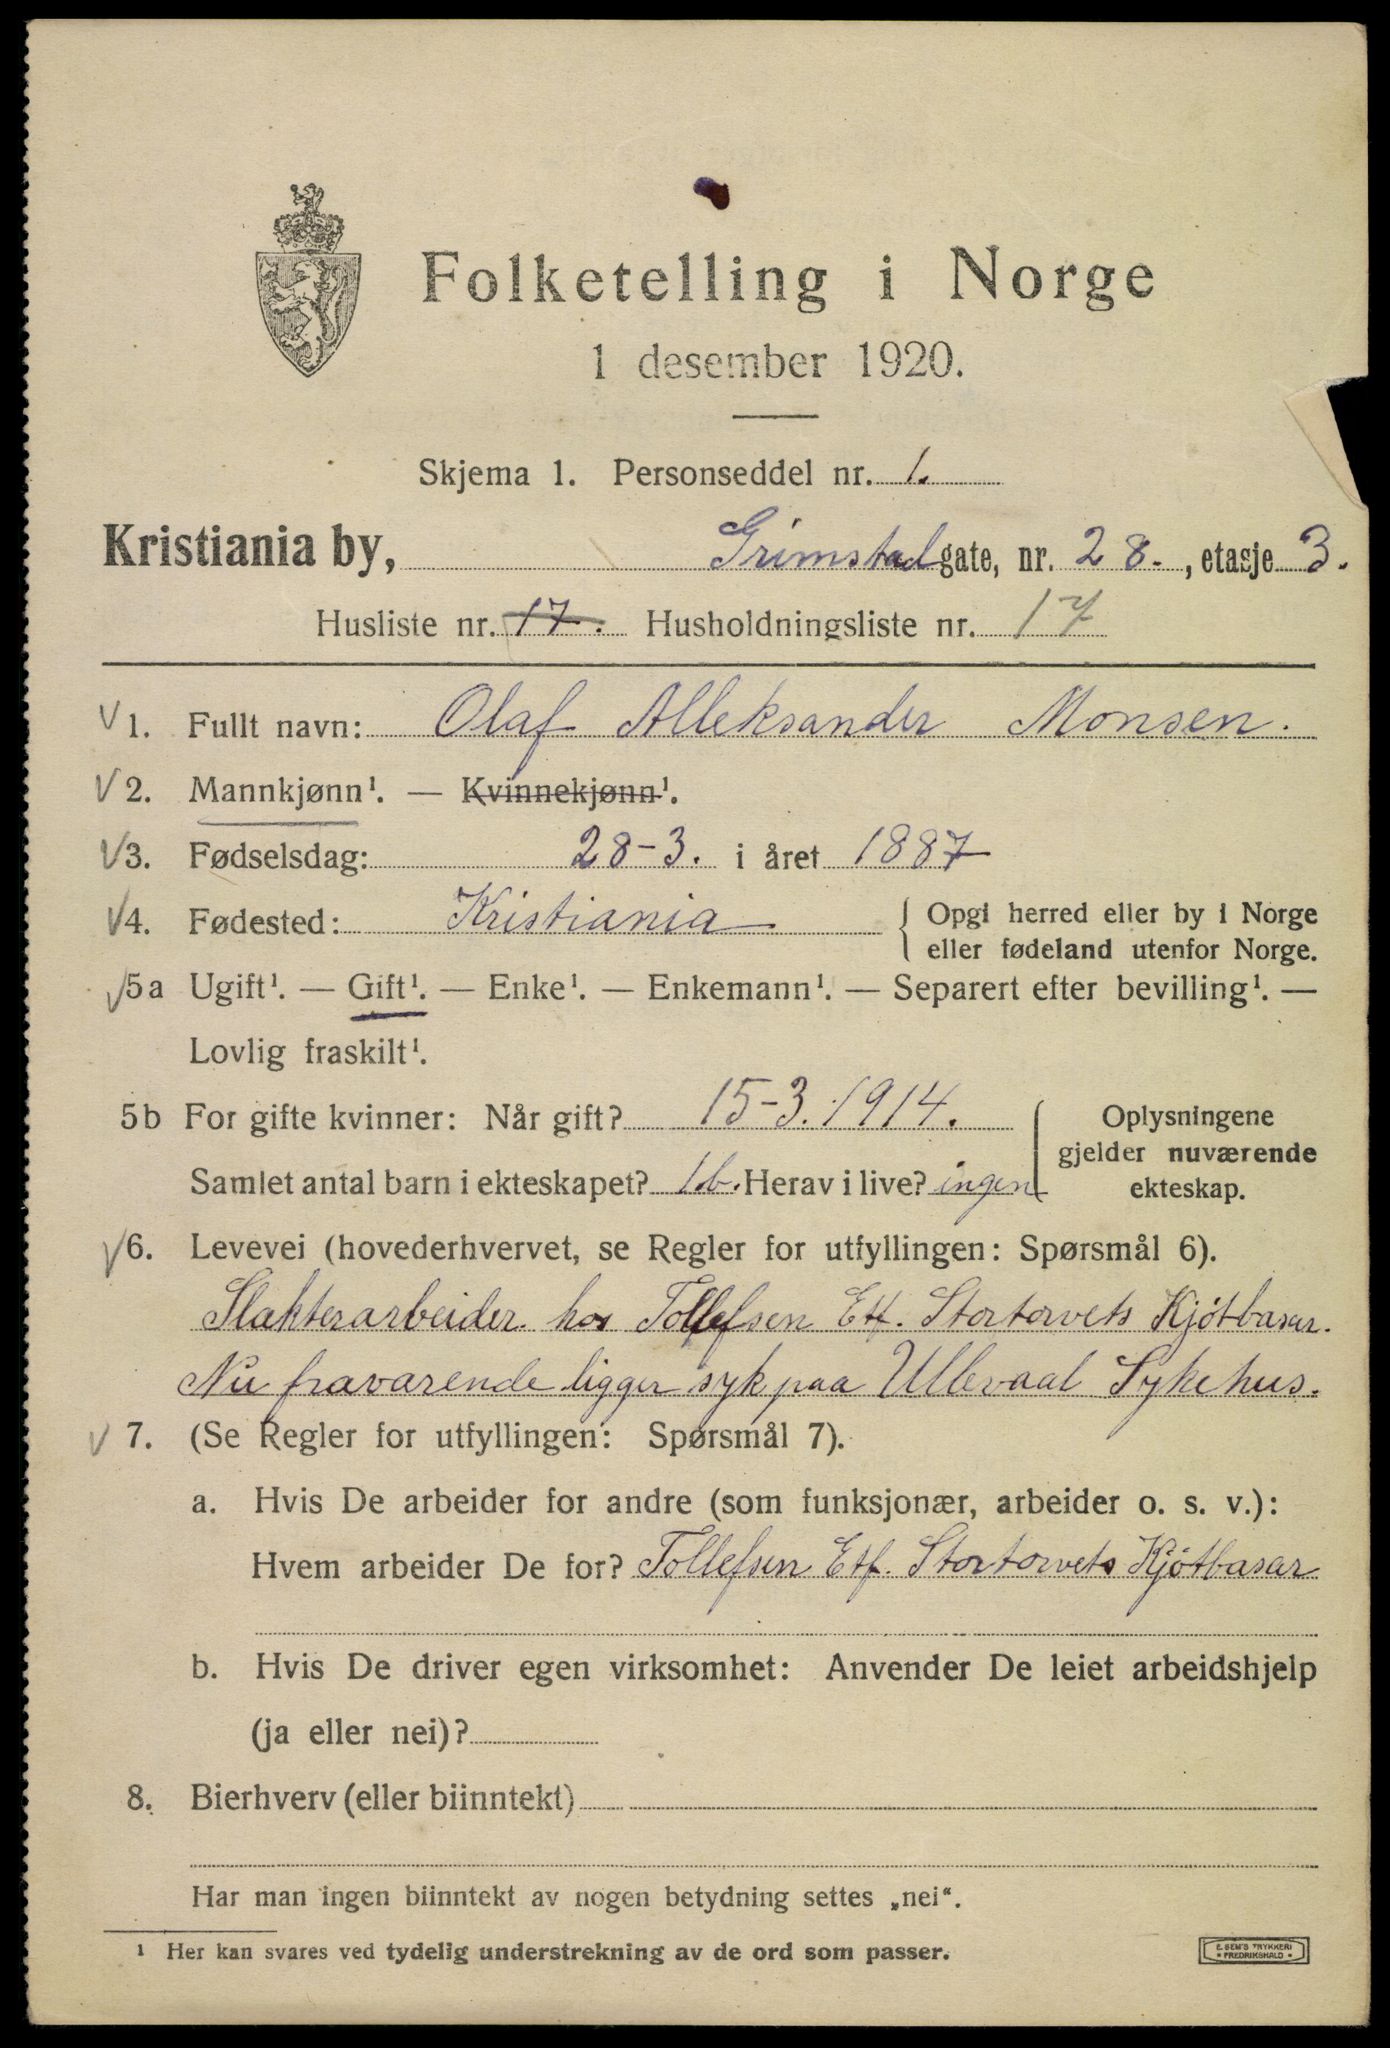 Folketelling i Norge
1 desember 1920.
Skjema 1. Personseddel nr. 1.
Kristiania by, Grimstadgate, nr. 28., etasje 3.
Husliste nr. 17. Husholdningsliste nr. 17
V 1. Fullt navn: Olaf Alleksander Monsen.
V 2. Mannkjønn¹. — Kvinnekjønn¹.
V 3. Fødselsdag: 28-3. i året 1887
V 4. Fødested: Kristiania { Opgi herred eller by i Norge
eller fødeland utenfor Norge.
V 5a Ugift¹. — Gift¹. — Enke¹. — Enkemann¹. — Separert efter bevilling¹. —
Lovlig fraskilt¹.
5b For gifte kvinner: Når gift? 15-3. 1914. Oplysningene
gjelder nuværende
Samlet antal barn i ekteskapet? 1b. Herav i live? ingen ekteskap.
V 6. Levevei (hovederhvervet, se Regler for utfyllingen: Spørsmål 6).
Slakterarbeider hos Tollefsen Etf. Stortorvets Kjötbasar.
Nu fraværende ligger syk paa Ullevaal Sykehus.
V 7. (Se Regler for utfyllingen: Spørsmål 7).
a. Hvis De arbeider for andre (som funksjonær, arbeider o. s. v.):
Hvem arbeider De for? Tollefsen Etf. Stortorvets Kjötbasar
b. Hvis De driver egen virksomhet: Anvender De leiet arbeidshjelp
(ja eller nei)?
8. Bierhverv (eller biinntekt)
Har man ingen biinntekt av nogen betydning settes „nei“.
¹ Her kan svares ved tydelig understrekning av de ord som passer.
E. SEM'S TRYKKERI
* FREDRIKSHALD *